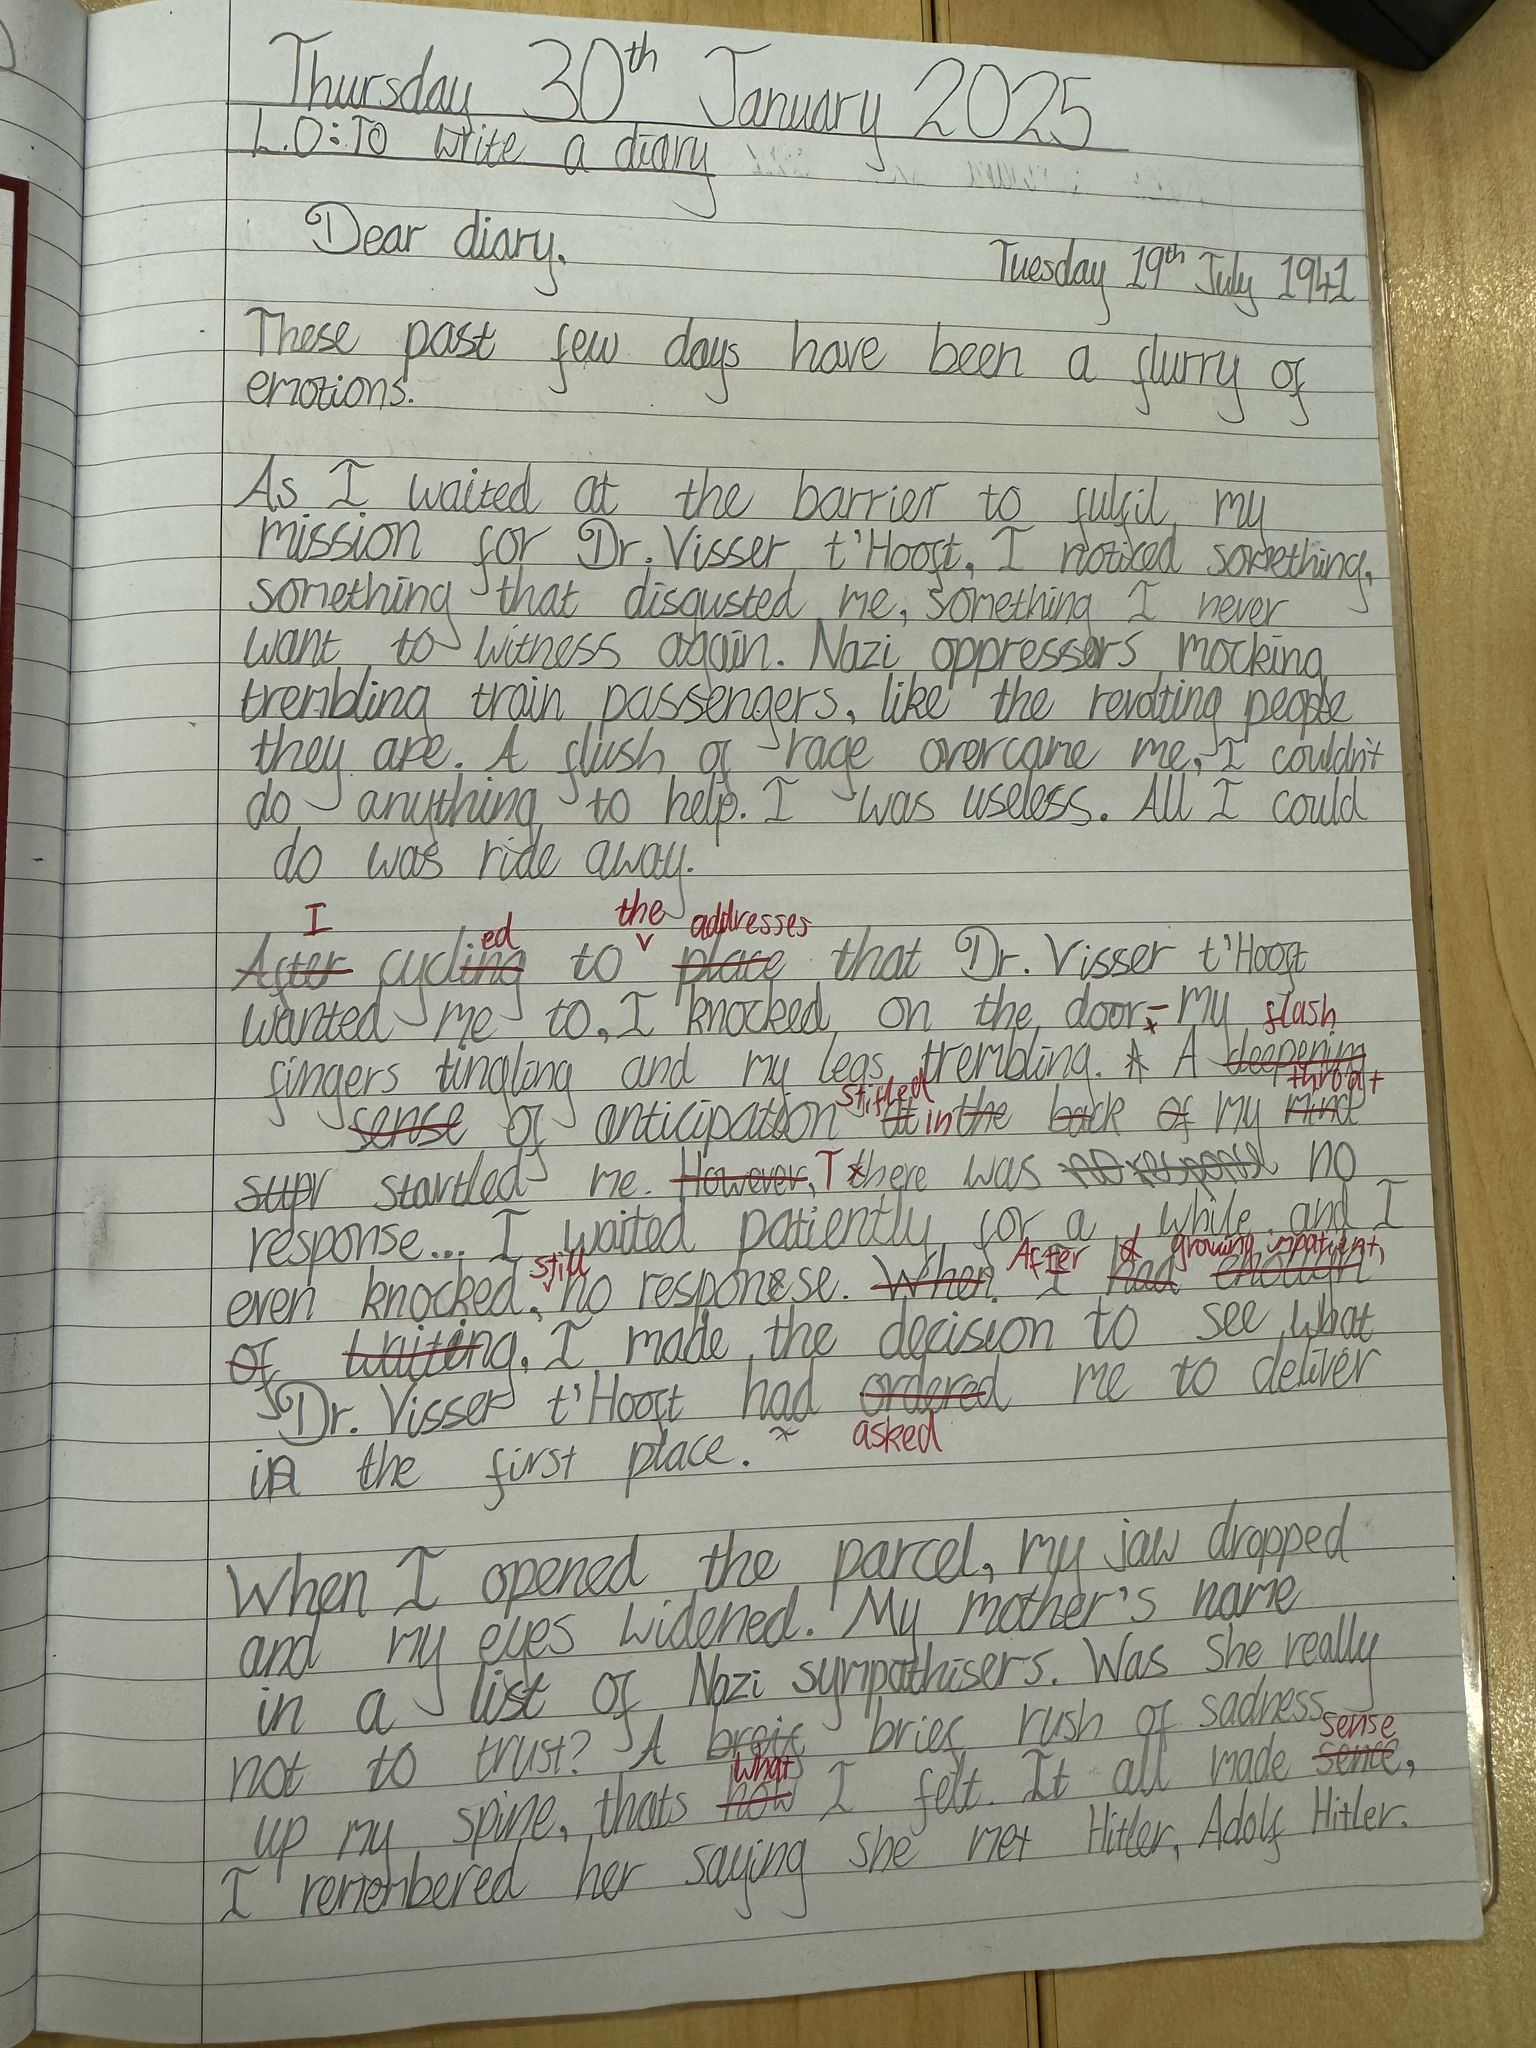 Thursday 30th January 2025
L.O: To write a diary
Dear diary,
Tuesday 19th July 1941
These past few days have been a flurry of
emotions.
As I waited at the barrier to fulfil my
mission for Dr. Visser t'Hooft, I noticed something,
something that disgusted me, something I never
want to witness again. Nazi oppressers mocking
trembling train passengers, like the revolting people
they are. A flush of rage overcame me, I couldn't
do anything to help. I was useless. All I could
do was ride away.
I ed the addresses
After cycling to place that Dr. Visser t'Hooft
wanted me to, I knocked on the door - my flash
fingers tingling and my legs trembling. A A deepening
stifled throat
sense of anticipation at in the back of my mind
supr startled me. However, T there was no response no
response... I waited patiently for a while and I
still After growing impatient,
even knocked, no response. When I had enough
of waiting, I made the decision to see what
Dr. Visser t'Hooft had ordered me to deliver
asked
in the first place.
When I opened the parcel, my jaw dropped
and my eyes widened. My mother's name
in a list of Nazi sympathisers. Was she really
not to trust? A breif brief rush of sadness
what sense
up my spine, thats how I felt. It all made sence,
I remembered her saying she met Hitler, Adolf Hitler.